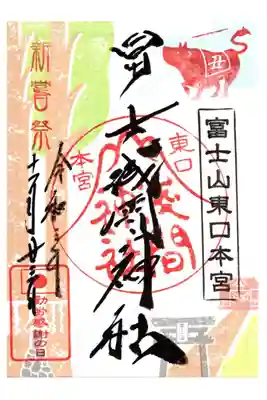 丑
富士山東口本宮
冨士浅間神社
東口
本宮
浅間神社
新嘗祭
令和三年
十一月廿三日
勤労感謝の日